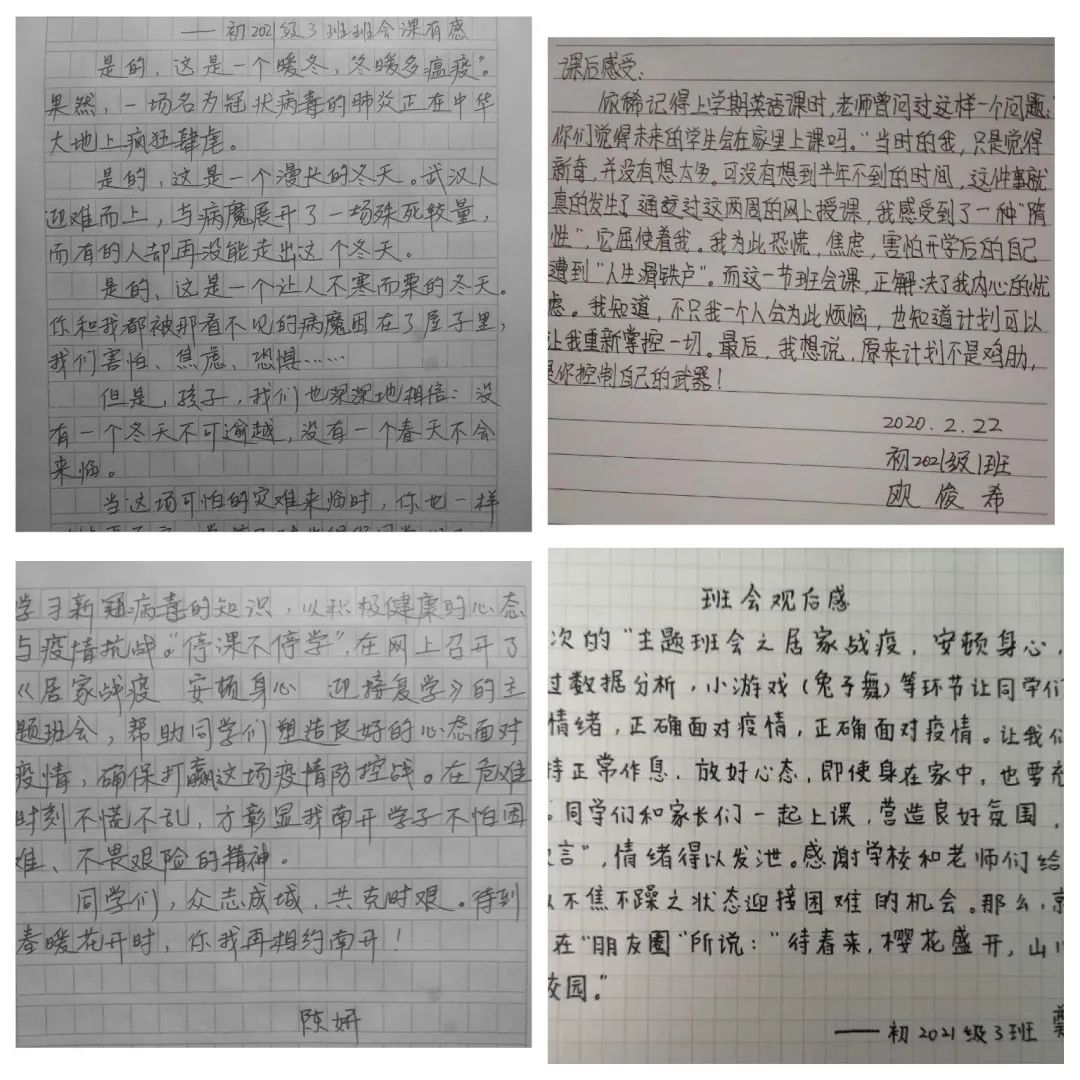 ——初2021级3班班会课有感
是的，这是一个暖冬，“冬暖多瘟疫”。
果然，一场名为冠状病毒的肺炎正在中华
大地上疯狂肆虐。
是的，这是一个漫长的冬天。武汉人
迎难而上，与病魔展开了一场殊死较量，
而有的人却再没能走出这个冬天。
是的，这是一个让人不寒而栗的冬天。
你和我都被那看不见的病魔困在了屋子里，
我们害怕、焦虑、恐惧……
但是，孩子，我们也深深地相信：没
有一个冬天不可逾越，没有一个春天不会
来临。
当这场可怕的灾难来临时，你也一样
课后感受：
依稀记得上学期英语课时，老师曾问过这样一个问题：
你们觉得未来的学生会在家里上课吗。”当时的我，只是觉得
新奇，并没有想太多。可没有想到半年不到的时间，这件事就
真的发生了通过这两周的网上授课，我感受到了一种“隋
性”，它屈使着我。我为此恐慌，焦虑，害怕开学后的自己
遭到“人生滑铁卢”。而这一节班会课，正解决了我内心的忧
虑。我知道，不只我一个人会为此烦恼，也知道计划可以
让我重新掌控一切。最后，我想说，原来计划不是鸡肋，
是你控制自己的武器！
2020.2.22
初2021级1班
欧俊希
学习新冠病毒的知识，以积极健康的心态
与疫情抗战。“停课不停学”，在网上召开了
《居家战疫 安顿身心 迎接复学》的主
题班会，帮助同学们塑造良好的心态面对
疫情，确保打赢这场疫情防控战。在危难
时刻不慌不乱，方彰显我南开学子不怕困
难、不畏艰险的精神。
同学们，众志成城，共克时艰。待到
春暖花开时，你我再相约南开！
陈妍
班会观后感
次的“主题班会之居家战疫，安顿身心，
过数据分析，小游戏（兔子舞）等环节让同学们
情绪，正确面对疫情，正确面对疫情。让我们
持正常作息，放好心态，即使身在家中，也要充
同学们和家长们一起上课，营造良好氛围，
言”，情绪得以发泄。感谢学校和老师们给
以不焦不躁之状态迎接困难的机会。那么，
在“朋友圈”所说：“待春来，樱花盛开，山
校园。”
——初2021级3班